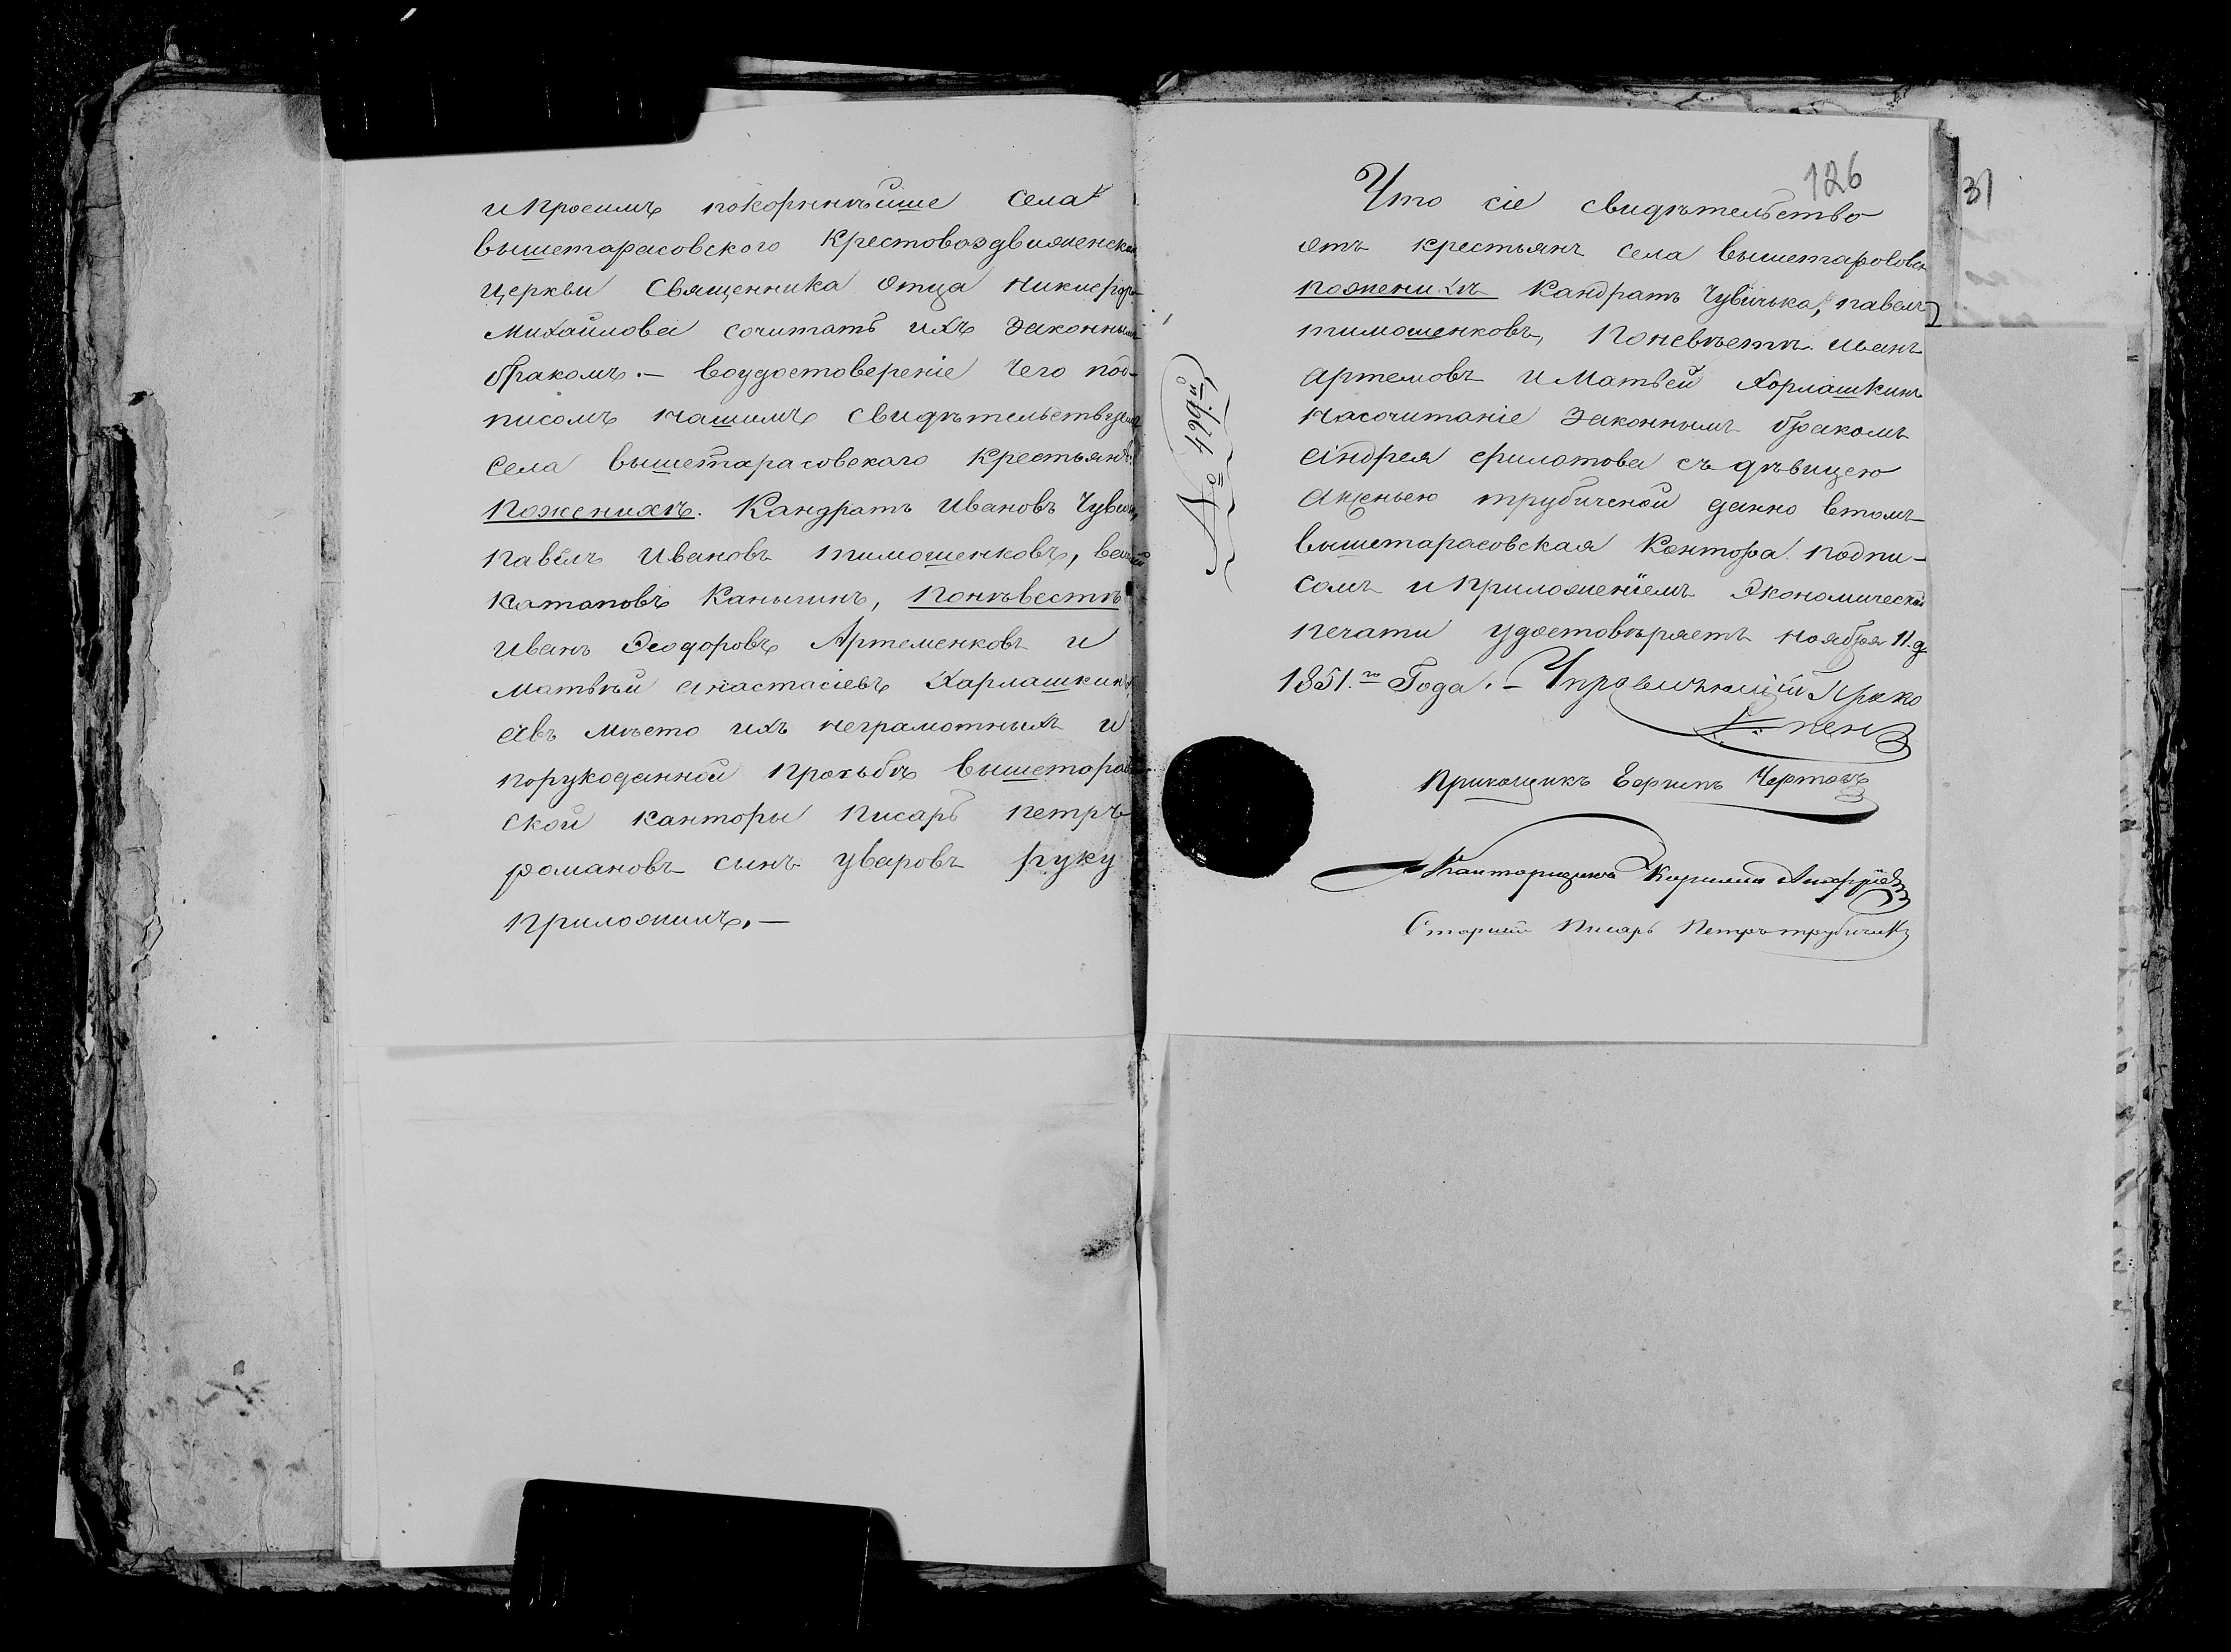 и просимъ покорнѣйше села
вышетарасовского Крестовоздвиженской
Церкви Священника Отца Никифора
Михайлова сочитать ихъ Законнымъ
бракомъ. — Воудостоверение Чего под-
писомъ нашимъ Свидѣтельствуемъ
Села вышетарасовскаго Крестьяне
Поженихѣ. Кандратъ Ивановъ
Павелъ Ивановъ тимошенковъ,
Каныгинъ, Поневестѣ
Иванъ Ѳеодоровъ Артеменковъ и
Матвѣй Анастасіевъ Харлашкинъ
Авъ мѣсто ихъ неграмотныхъ и
порукоданной прозьбѣ вышетарасов
ской канторы Писарь петръ
романовъ сынъ уваровъ руку
приложилъ. —
126
31
Что сіе свидѣтельство
отъ крестьянъ села вышетарасовск
поженихѣ Кандратъ Чувичька, павелъ
тимошенковъ, Поневѣстѣ Иванъ
артемовъ и Матвей Харлашкинъ
насочитаніе Законнымъ бракомъ
Андрея филатова съ дѣвицею
Аксеньею трубичной данно втомъ
вышетарасовская Кантора подпи-
сомъ и приложеніемъ Экономической
печати удостовѣряетъ ноября 11. д
1851.го Года. — Управляющій Проко
пенко
Прикащикъ Чертовъ
№ 499
Канторщикъ Кирилло Андрѣевъ
Старшій Писарь Петръ трубичинъ